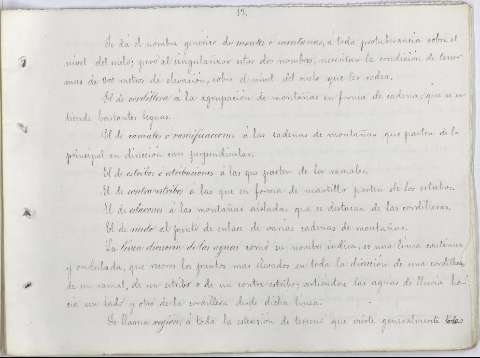 19.
Se dá el nombre genérico de montes o montañas, á toda protuberancia sobre el
nivel del suelo; pero al singularizar estos dos nombres, necesitan la condición de tener
mas de 200 metros de elevación, sobre el nivel del suelo que les rodea.
El de cordillera á la agrupación de montañas en forma de cadena, que se es
tiende bastantes leguas.
El de ramales o ramificaciones á las cadenas de montañas que parten de la
principal en dirección casi perpendicular.
El de estribos o estribaciones á las que parten de los ramales.
El de contraestribos a las que en forma de martillo parten de los estribos.
El de estaciones á las montañas aisladas que se destacan de las cordilleras.
El de nudo al punto de enlace de varias cadenas de montañas.
La línea divisoria de las aguas como su nombre indica, es una línea continua
y ondulada, que recorre los puntos mas elevados en toda la dirección de una cordillera,
de un ramal, de un estribo o de un contra estribo, partiéndose las aguas de lluvia ha-
cia un lado y otro de la cordillera desde dicha linea.
Se llama región, á toda la estensión de terreno que vierte generalmente todas